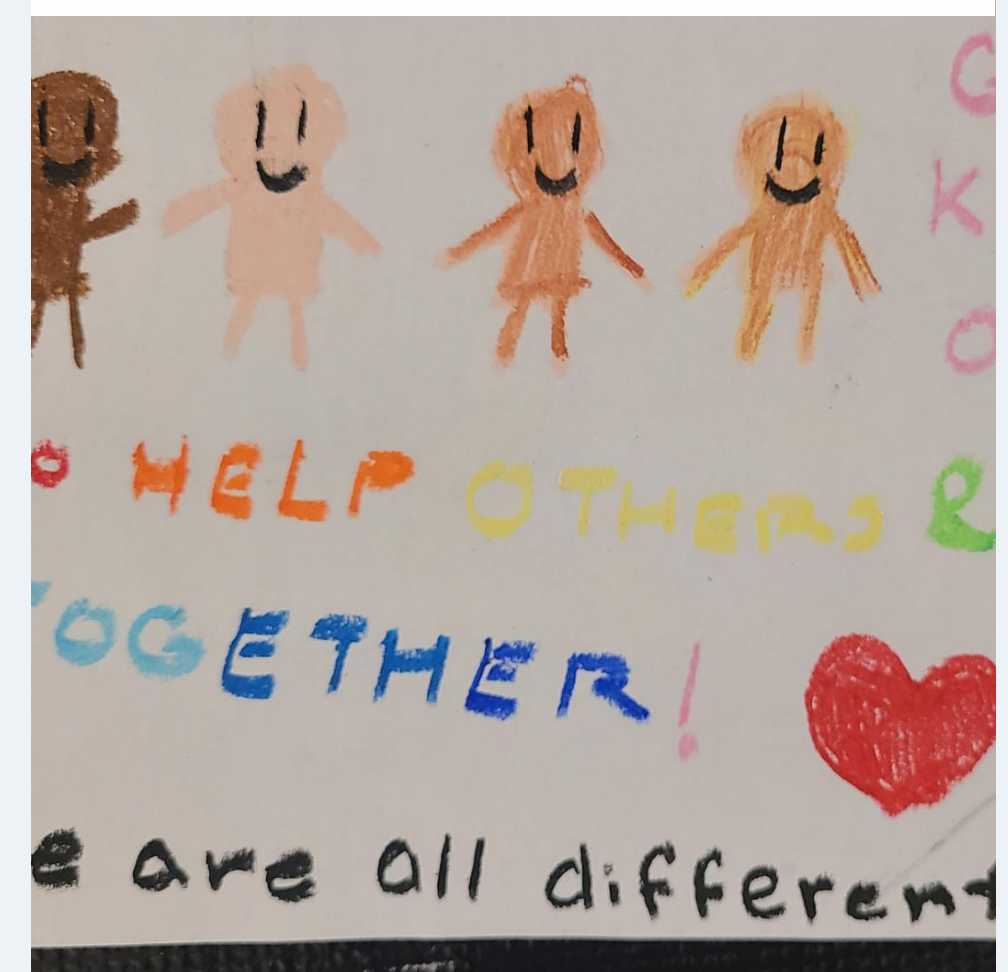 G
K
O
O HELP OTHERS R
TOGETHER!
e are all different